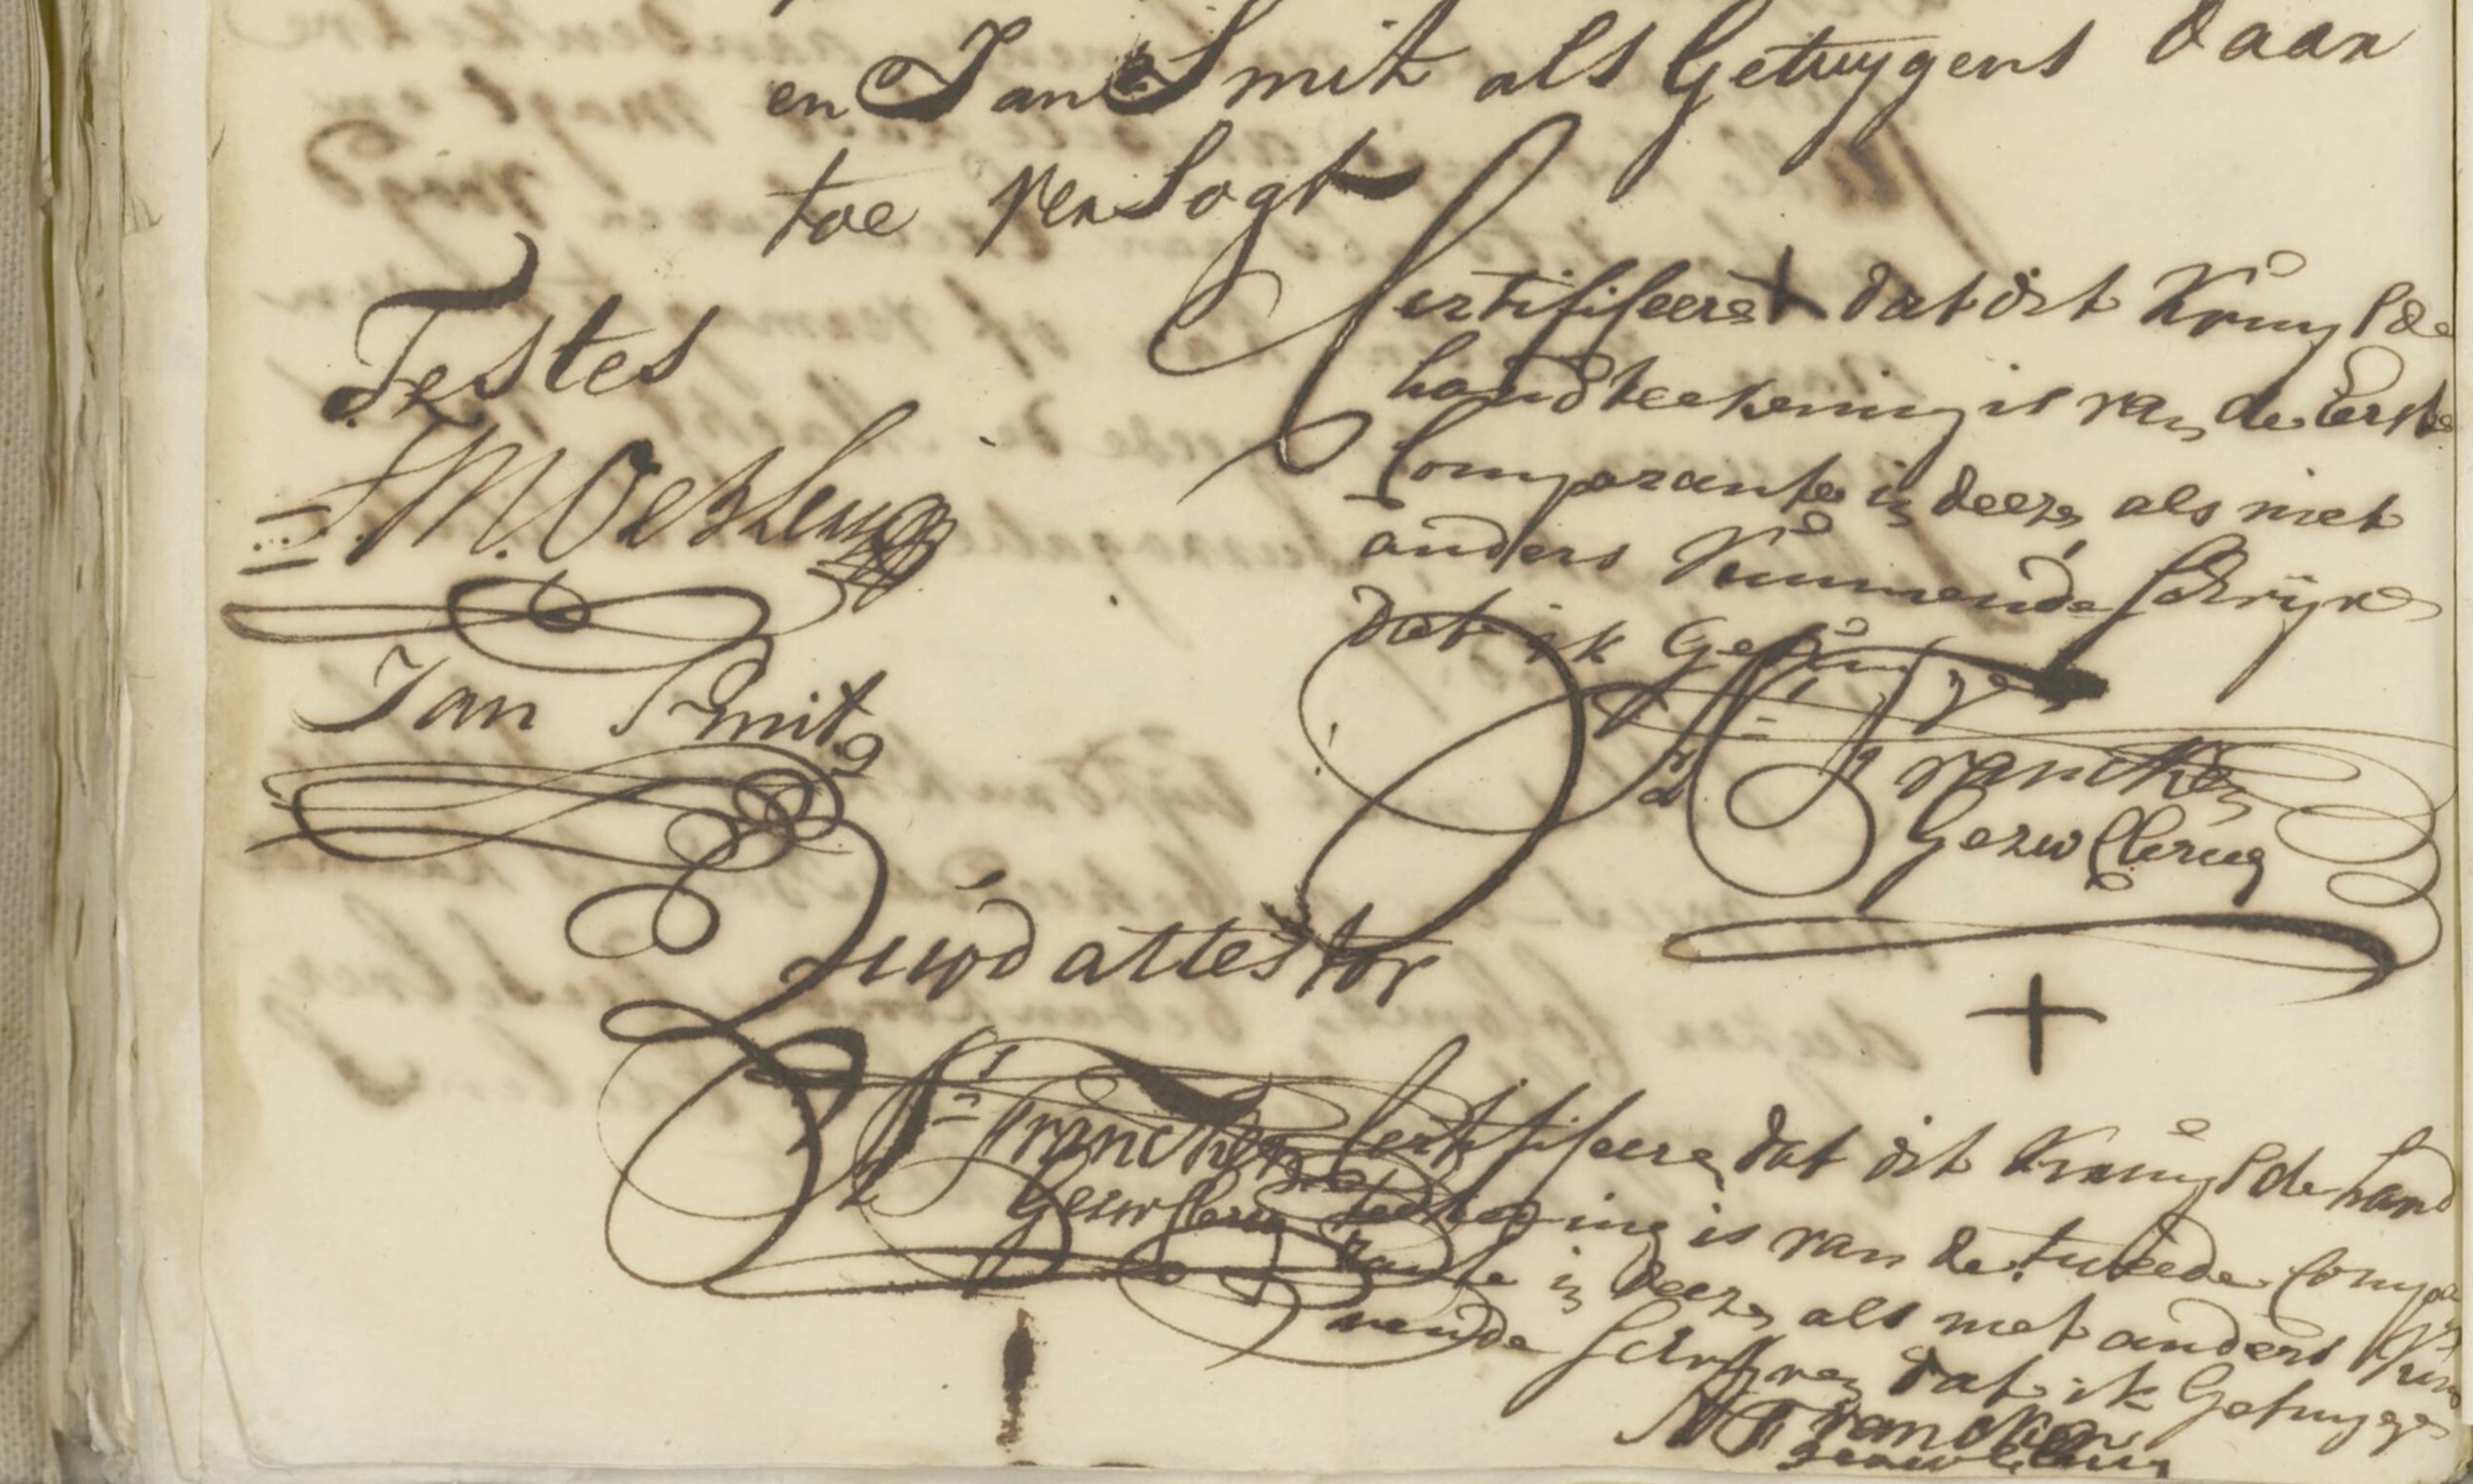 en Jan Smit als Getuygens daar
toe versogt
Testes
J. M. Oesleng
Jan Smit
quod attestor
Francken
Gezw Clercq
Certifiseere dat dit Kruys de
handteekening is van de Eerste
Comparante in deezen als niet
anders Kunnende schrijven
dat ik Getuyge
Francken
Gezw Clercq
+
Certifiseere dat dit Kruys de hand
teekening is van de tweede Compa
rante in deezen als niet anders Kun
nende Schryven dat ik Getuyge
Francken
gezw Clercq